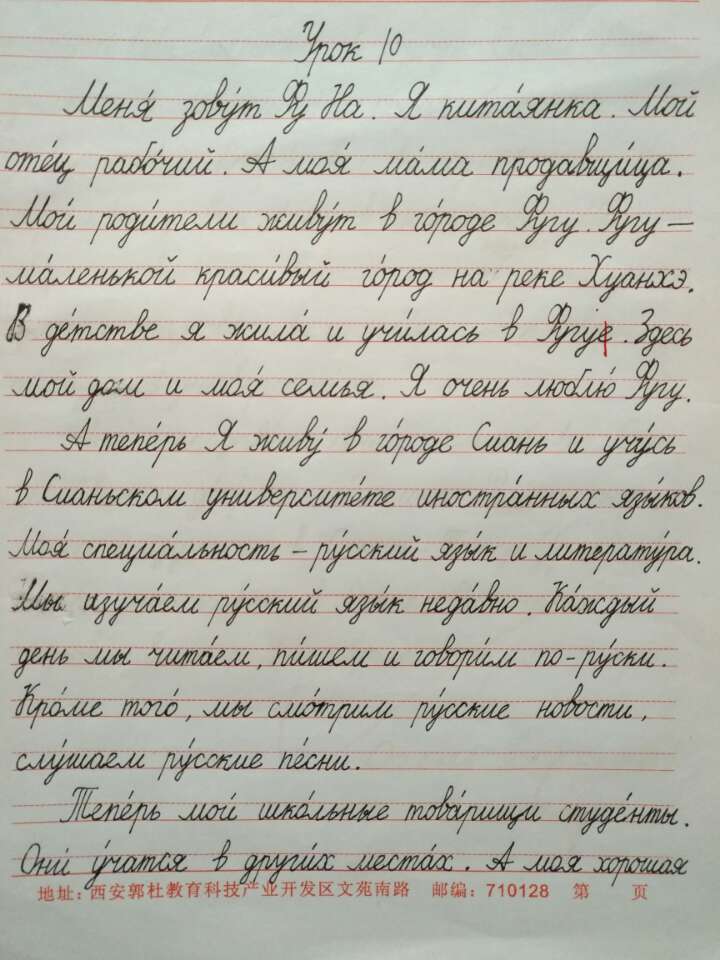 Урок 10
Меня́ зову́т Фу На. Я кита́янка. Мой
оте́ц рабо́чий. А моя́ ма́ма продавщи́ца.
Мои́ роди́тели живу́т в го́роде Фугу. Фугу —
ма́ленькой краси́вый го́род на реке Хуанхэ.
В де́тстве я жила́ и учи́лась в Фугуе. Здесь
мой дом и моя́ семья. Я очень люблю́ Фугу.
А тепе́рь Я живу́ в го́роде Сиань и учу́сь
в Сианьском университе́те иностра́нных язы́ков.
Моя́ специа́льность – ру́сский язы́к и литерату́ра.
Мы изуча́ем ру́сский язы́к неда́вно. Ка́ждый
день мы чита́ем, пи́шем и говори́м по-ру́ски.
Кро́ме того́, мы смо́трим ру́сские новости,
слу́шаем ру́сские пе́сни.
Тепе́рь мои́ шко́льные това́рищи студе́нты.
Они́ у́чатся в други́х места́х. А моя хорошая
地址：西安郭杜教育科技产业开发区文苑南路 邮编：710128 第 页